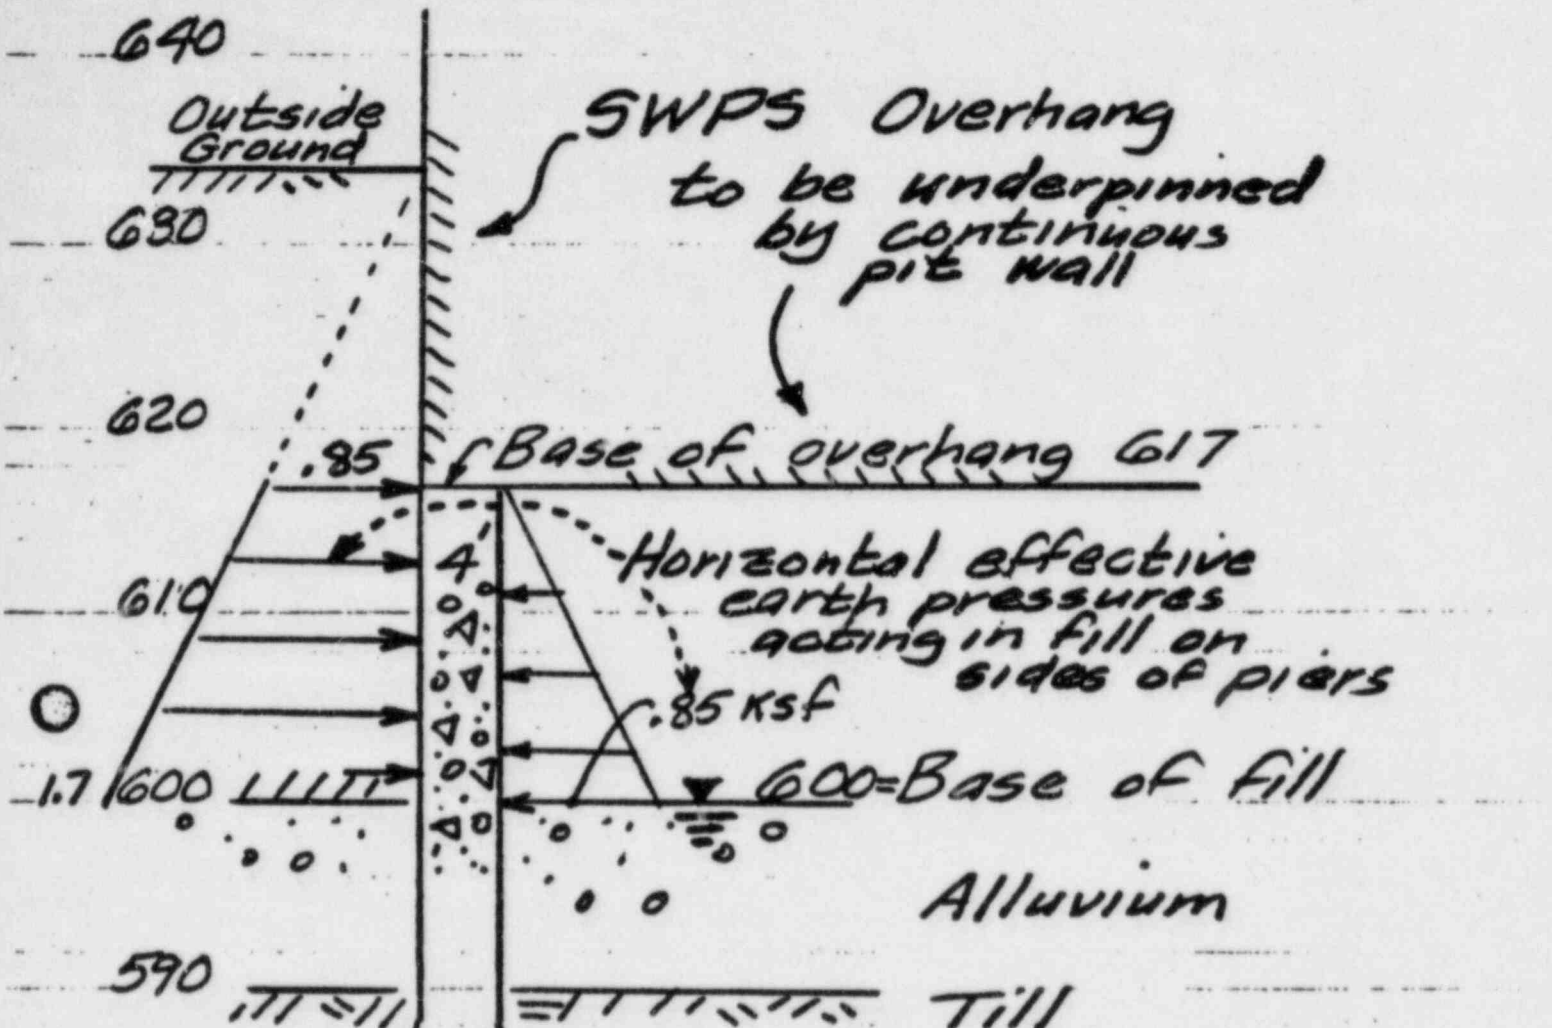 640
Outside
Ground
SWPS Overhang
to be underpinned
by continuous
pit wall
630
620
.85
Base of overhang 617
Horizontal effective
earth pressures
acting in fill on
sides of piers
610
.85 ksf
1.7
600
600=Base of fill
Alluvium
590
Till